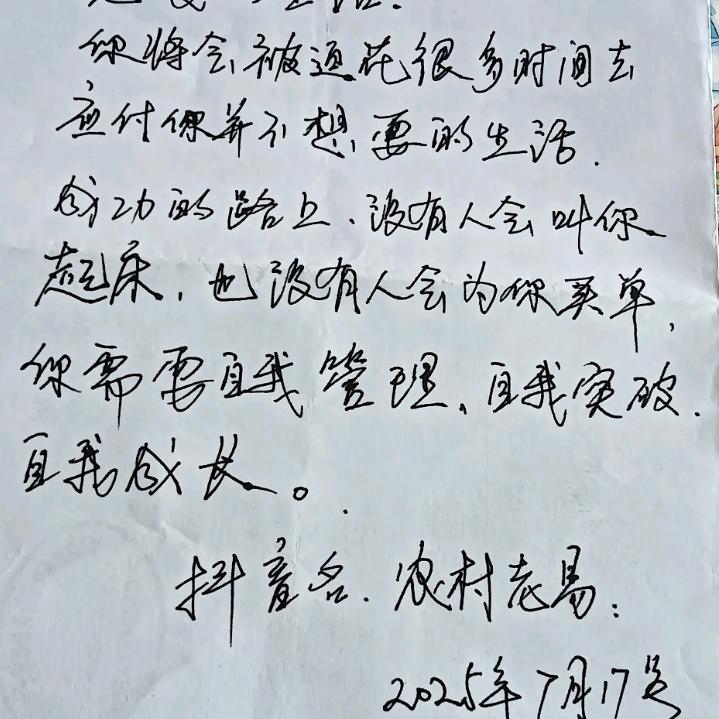 你将会被迫花很多时间去
应付你并不想要的生活.
成功的路上、没有人会叫你
起床,也没有人会为你买单,
你需要自我管理、自我突破.
自我成长。
抖音名.农村老易:
2025年7月17号